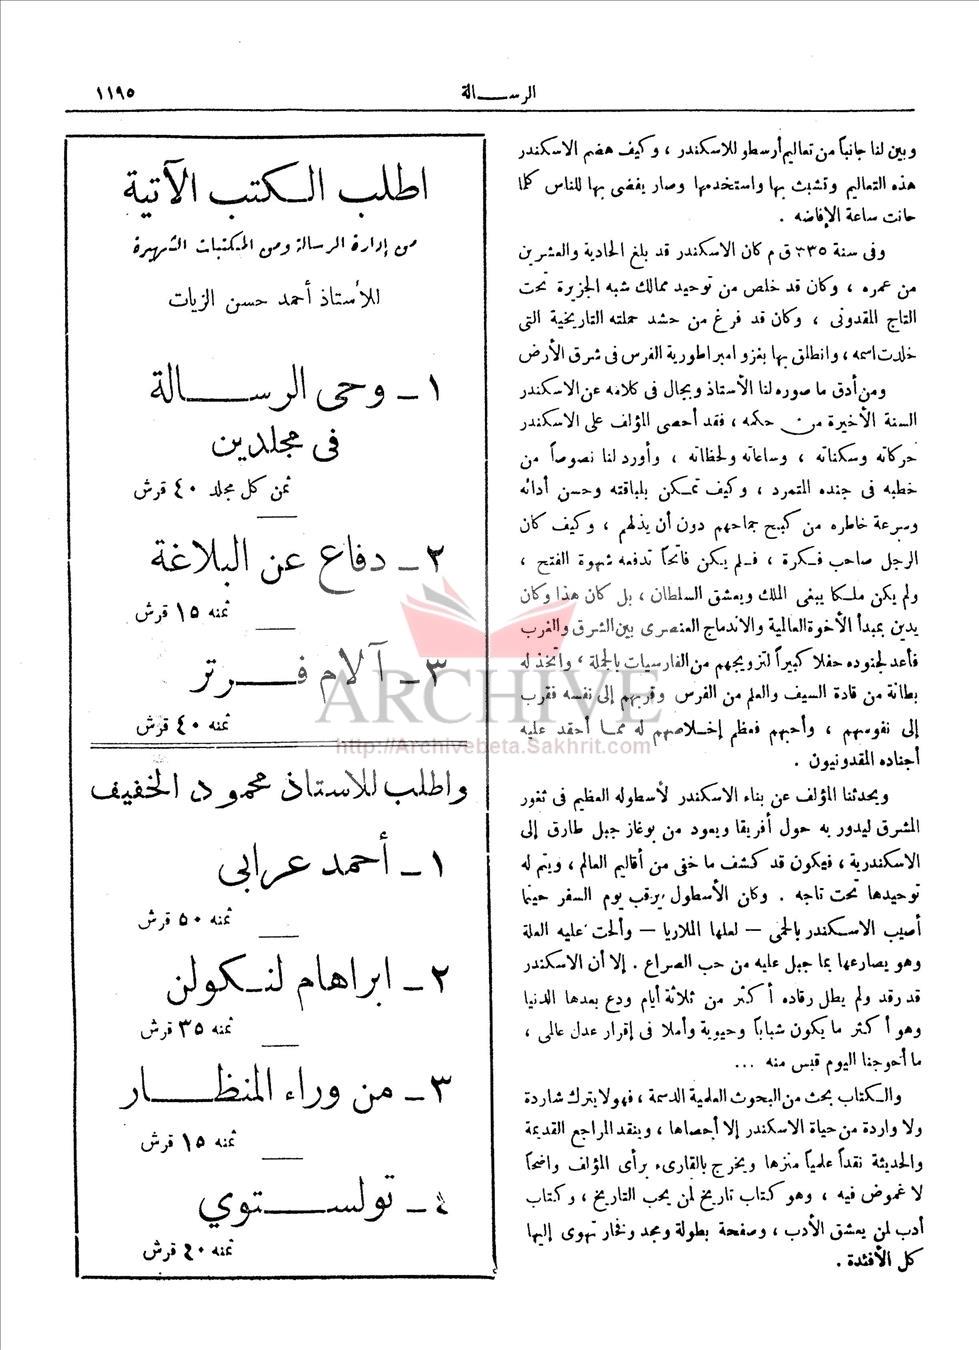 الرسالة
١١٩٥
وبين لنا جانباً من تعاليم أرسطو للاسكندر ، وكيف هضم الاسكندر
هذه التعاليم وتشبث بها واستخدمها وصار يفضى بها للناس كلما
حانت ساعة الإفاضه .
وفى سنة ٣٣٥ ق م كان الاسكندر قد بلغ الحادية والعشرين
من عمره ، وكان قد خلص من توحيد ممالك شبه الجزيرة تحت
التاج المقدونى ، وكان قد فرغ من حشد حملته التاريخية التى
خلدت اسمه ، وانطلق بها بغزو امبراطورية الفرس فى شرق الأرض
ومن أدق ما صوره لنا الأستاذ وبجال فى كلامه عن الاسكندر
السنة الأخيرة من حكمه ، فقد أحصى المؤلف على الاسكندر
حركاته وسكناته ، وساعاته ولحظاته ، وأورد لنا نصوصاً من
خطبه فى جنده المتمرد ، وكيف تمكن بلباقته وحسن أدائه
وسرعة خاطره من كبح جماحهم دون أن يذلهم ، وكيف كان
الرجل صاحب فكرة ، فلم يكن فاتحاً تدفعه شهوة الفتح ،
ولم يكن ملكا يبغى الملك ويعشق السلطان ، بل كان هذا وكان
يدين بمبدأ الأخوة العالمية والاندماج العنصرى بين الشرق والغرب
فأعد لجنوده حفلا كبيراً لتزويجهم من الفارسيات بالجملة ، واتخذ له
بطانة من قادة السيف والعلم من الفرس وقربهم إلى نفسه فقرب
إلى نفوسهم ، وأحبهم فعظم إخلاصهم له مما أحقد عليه
أجناده المقدونيون .
ويحدثنا المؤلف عن بناء الاسكندر لأسطوله العظيم فى ثغور
المشرق ليدور به حول أفريقا ويعود من بوغاز جبل طارق إلى
الاسكندرية ، فيكون قد كشف ما خفى من أقاليم العالم ، ويتم له
توحيدها تحت تاجه . وكان الأسطول يرقب يوم السفر حينما
أصيب الاسكندر بالحمى — لعلها الملاريا — وألحت عليه العلة
وهو يصارعها بما جبل عليه من حب الصراع . إلا أن الاسكندر
قد رقد ولم يطل رقاده أكثر من ثلاثة أيام ودع بعدها الدنيا
وهو أكثر ما يكون شباباً وحيوية وأملا فى إقرار عدل عالمى ،
ما أحوجنا اليوم قبس منه ...
والكتاب بحث من البحوث العلمية الدسمة ، فهو لا يترك شاردة
ولا واردة من حياة الاسكندر إلا أحصاها ، وينقد المراجع القديمة
والحديثة نقداً علمياً منزها ويخرج بالقارىء برأى المؤلف واضحاً
لا غموض فيه ، وهو كتاب تاريخ لمن يحب التاريخ ، وكتاب
أدب لمن يعشق الأدب ، وصفحة بطولة ومجد وفخار تهوى إليها
كل الأفئدة .
اطلب الكتب الآتية
من إدارة الرسالة ومن المكتبات الشهيرة
للأستاذ أحمد حسن الزيات
١ – وحى الرسالة
فى مجلدين
ثمن كل مجلد ٤٠ قرش
٢ – دفاع عن البلاغة
ثمنه ١٥ قرش
٣ – آلام فرتر
ثمنه ٤٠ قرش
واطلب للاستاذ محمود الخفيف
١ – أحمد عرابى
ثمنه ٥٠ قرش
٢ – ابراهام لنكولن
ثمنه ٣٥ قرش
٣ – من وراء المنظار
ثمنه ١٥ قرش
٤ – تولستوي
ثمنه ٤٠ قرش
ARCHIVE
http://Archivebeta.Sakhrit.com